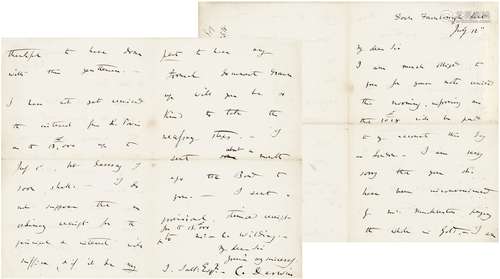 Down Farnborough Kent
July 12th
My dear Sir
I am much obliged to
you for your note received
this morning, informing me
the 101.8 will be paid
to my account this day
in London. — I am very
sorry that you should
have been inconvenienced
by Mr. paying
the whole in Gold. — I am
thankful to have done
with this gentleman. —
I have not yet received
the interest for Mr
on the 13,000 up to
July 5th, but daresay I
soon shall. — I do
not suppose that an
ordinary receipt for the
principal & interest will
suffice, & if it be any
part to have any
formal document drawn
up will you be so
kind to take the
necessary steps. — I
sent about a month
ago the Bond to
you. — I sent a
provisional, receipt
for the 13,000
to Wilding. —
My dear Sir
Yours very sincerely
J. Salt Esqr. — C. Darwin